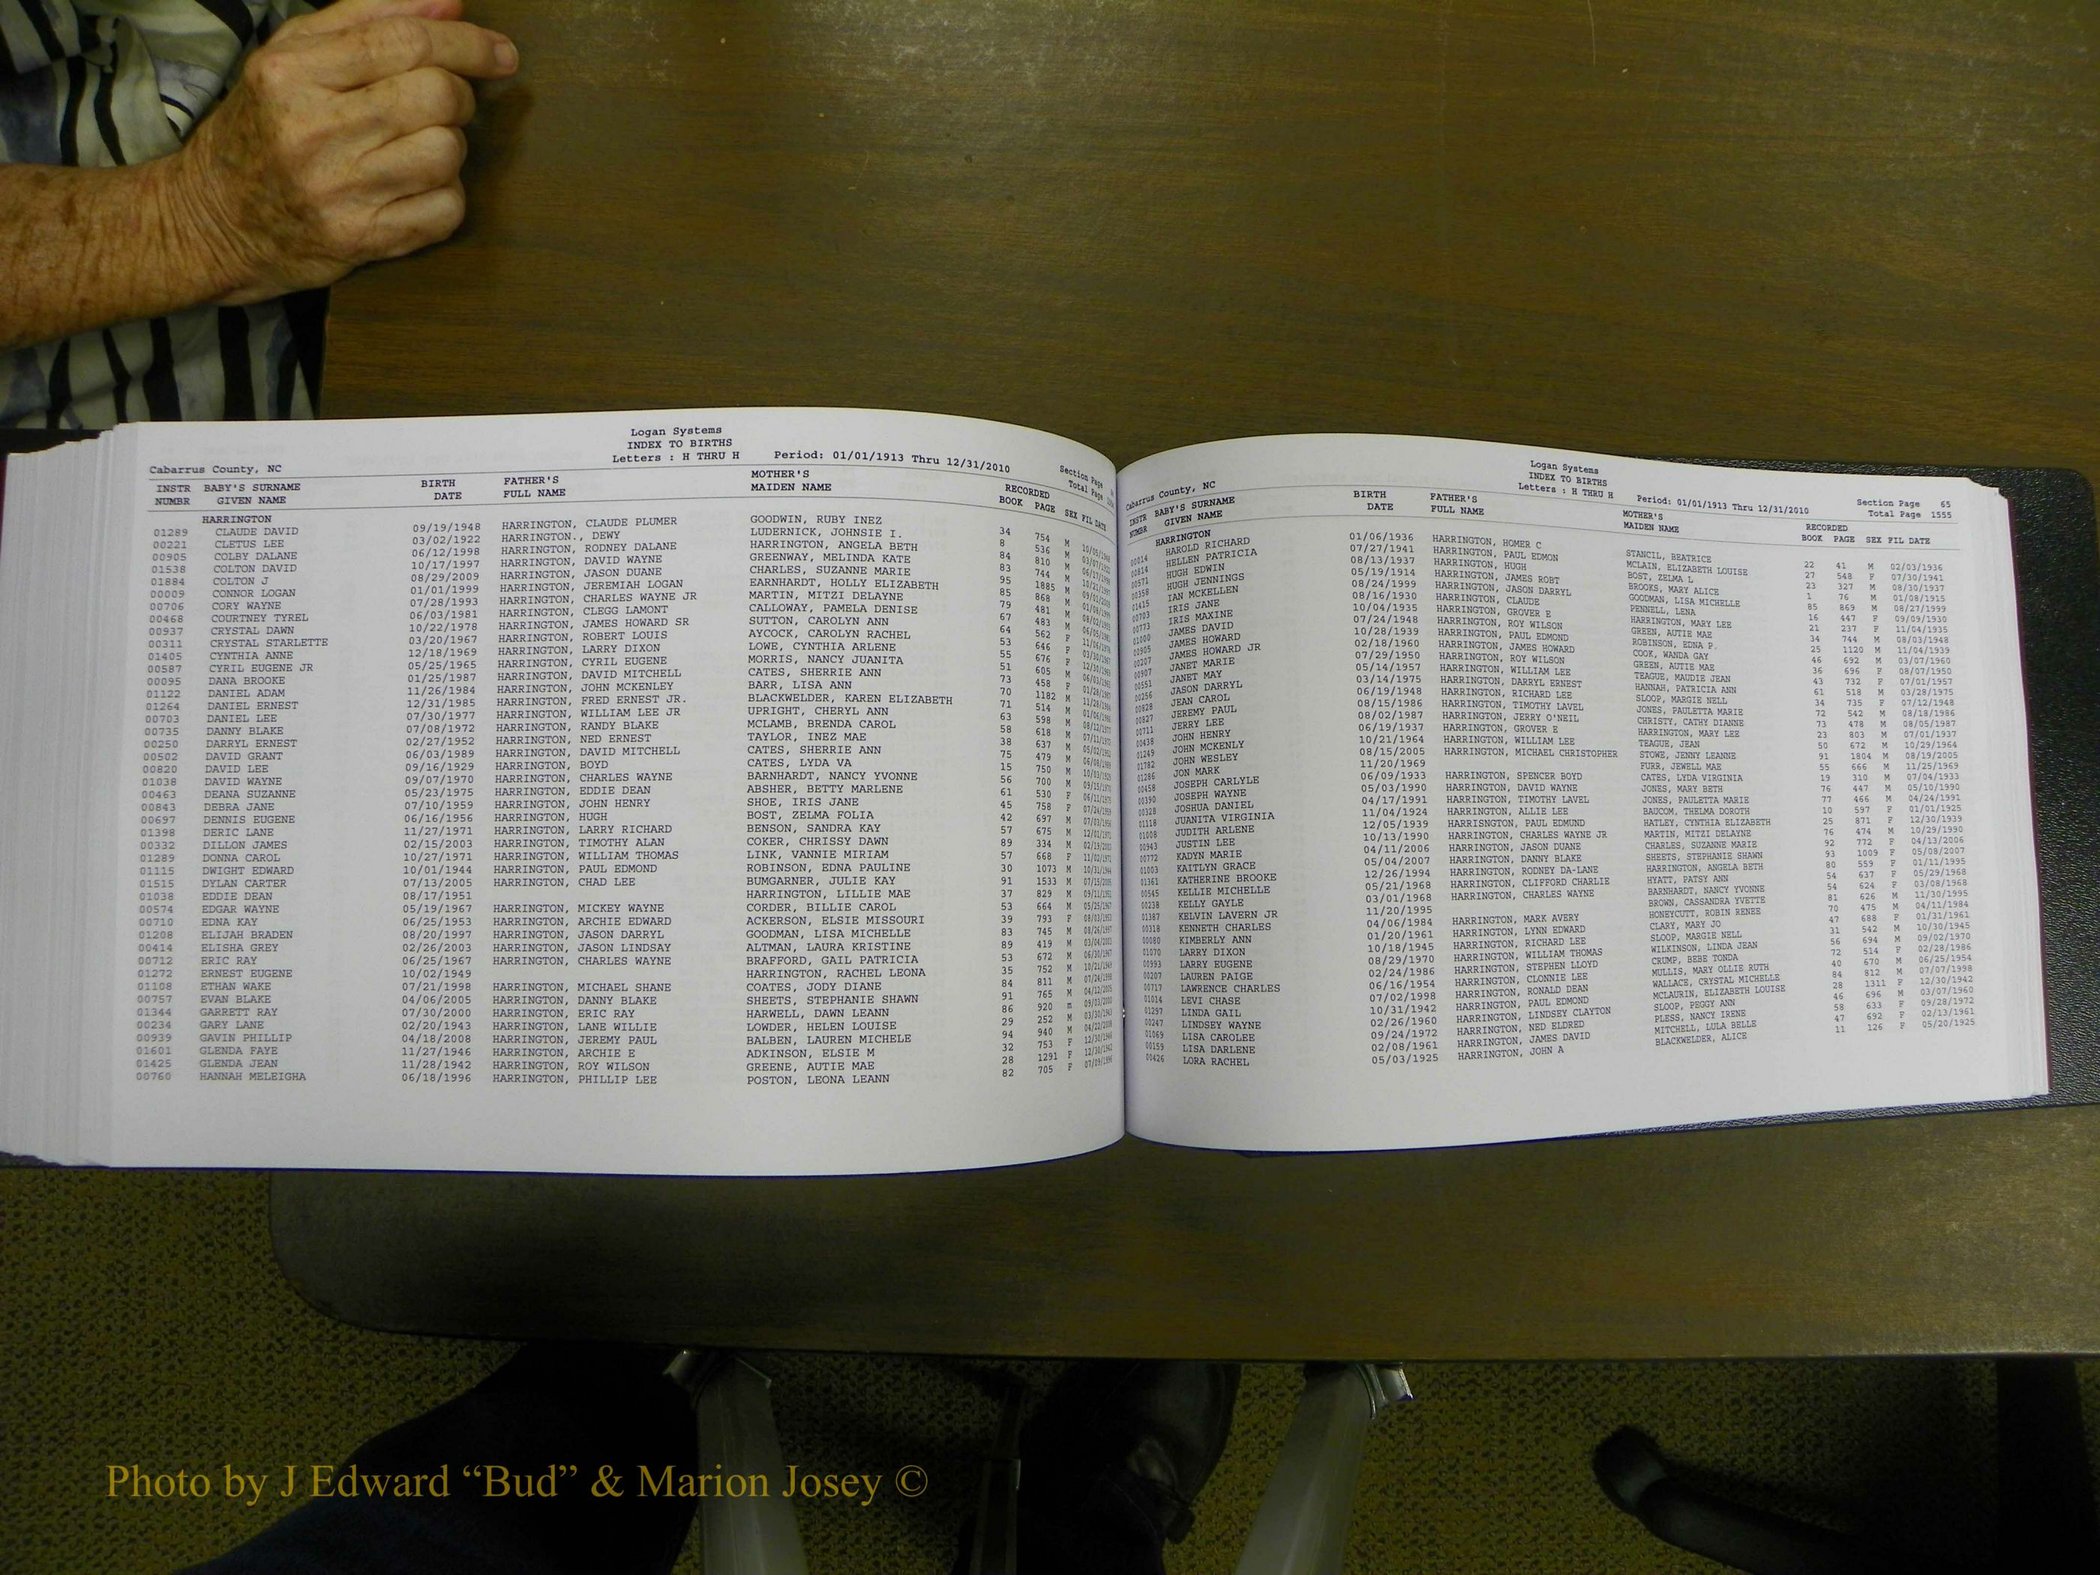 Logan Systems
INDEX TO BIRTHS
Cabarrus County, NC Letters : H THRU H Period: 01/01/1913 Thru 12/31/2010 Section Page
Total Page
INSTR BABY'S SURNAME BIRTH FATHER'S MOTHER'S RECORDED
NUMBR GIVEN NAME DATE FULL NAME MAIDEN NAME BOOK PAGE SEX FIL DATE
HARRINGTON
01289 CLAUDE DAVID 09/19/1948 HARRINGTON, CLAUDE PLUMER GOODWIN, RUBY INEZ 34 754 M
00221 CLETUS LEE 03/02/1922 HARRINGTON., DEWY LUDERNICK, JOHNSIE I. 8 536 M
00905 COLBY DALANE 06/12/1998 HARRINGTON, RODNEY DALANE HARRINGTON, ANGELA BETH 84 810 M
01538 COLTON DAVID 10/17/1997 HARRINGTON, DAVID WAYNE GREENWAY, MELINDA KATE 83 744 M
01884 COLTON J 08/29/2009 HARRINGTON, JASON DUANE CHARLES, SUZANNE MARIE 95 1885 M
00009 CONNOR LOGAN 01/01/1999 HARRINGTON, JEREMIAH LOGAN EARNHARDT, HOLLY ELIZABETH 85 868 M
00706 CORY WAYNE 07/28/1993 HARRINGTON, CHARLES WAYNE JR MARTIN, MITZI DELAYNE 79 481 M
00468 COURTNEY TYREL 06/03/1981 HARRINGTON, CLEGG LAMONT CALLOWAY, PAMELA DENISE 67 483 M
00937 CRYSTAL DAWN 10/22/1978 HARRINGTON, JAMES HOWARD SR SUTTON, CAROLYN ANN 64 562 F
00311 CRYSTAL STARLETTE 03/20/1967 HARRINGTON, ROBERT LOUIS AYCOCK, CAROLYN RACHEL 53 646 F
01405 CYNTHIA ANNE 12/18/1969 HARRINGTON, LARRY DIXON LOWE, CYNTHIA ARLENE 55 676 F
00587 CYRIL EUGENE JR 05/25/1965 HARRINGTON, CYRIL EUGENE MORRIS, NANCY JUANITA 51 605 M
00095 DANA BROOKE 01/25/1987 HARRINGTON, DAVID MITCHELL CATES, SHERRIE ANN 73 458 F
01122 DANIEL ADAM 11/26/1984 HARRINGTON, JOHN MCKENLEY BARR, LISA ANN 70 1182 M
01264 DANIEL ERNEST 12/31/1985 HARRINGTON, FRED ERNEST JR. BLACKWELDER, KAREN ELIZABETH 71 514 M
00703 DANIEL LEE 07/30/1977 HARRINGTON, WILLIAM LEE JR UPRIGHT, CHERYL ANN 63 598 M
00735 DANNY BLAKE 07/08/1972 HARRINGTON, RANDY BLAKE MCLAMB, BRENDA CAROL 58 618 M
00250 DARRYL ERNEST 02/27/1952 HARRINGTON, NED ERNEST TAYLOR, INEZ MAE 38 637 M
00502 DAVID GRANT 06/03/1989 HARRINGTON, DAVID MITCHELL CATES, SHERRIE ANN 75 479 M
00820 DAVID LEE 09/16/1929 HARRINGTON, BOYD CATES, LYDA VA 15 750 M
01038 DAVID WAYNE 09/07/1970 HARRINGTON, CHARLES WAYNE BARNHARDT, NANCY YVONNE 56 700 M
00463 DEANA SUZANNE 05/23/1975 HARRINGTON, EDDIE DEAN ABSHER, BETTY MARLENE 61 530 F
00843 DEBRA JANE 07/10/1959 HARRINGTON, JOHN HENRY SHOE, IRIS JANE 45 758 F
00697 DENNIS EUGENE 06/16/1956 HARRINGTON, HUGH BOST, ZELMA FOLIA 42 697 M
01398 DERIC LANE 11/27/1971 HARRINGTON, LARRY RICHARD BENSON, SANDRA KAY 57 675 M
00332 DILLON JAMES 02/15/2003 HARRINGTON, TIMOTHY ALAN COKER, CHRISSY DAWN 89 334 M
01289 DONNA CAROL 10/27/1971 HARRINGTON, WILLIAM THOMAS LINK, VANNIE MIRIAM 57 668 F
01115 DWIGHT EDWARD 10/01/1944 HARRINGTON, PAUL EDMOND ROBINSON, EDNA PAULINE 30 1073 M
01515 DYLAN CARTER 07/13/2005 HARRINGTON, CHAD LEE BUMGARNER, JULIE KAY 91 1533 M
01038 EDDIE DEAN 08/17/1951 HARRINGTON, LILLIE MAE 37 829 M
00574 EDGAR WAYNE 05/19/1967 HARRINGTON, MICKEY WAYNE CORDER, BILLIE CAROL 53 664 M
00710 EDNA KAY 06/25/1953 HARRINGTON, ARCHIE EDWARD ACKERSON, ELSIE MISSOURI 39 793 F
01208 ELIJAH BRADEN 08/20/1997 HARRINGTON, JASON DARRYL GOODMAN, LISA MICHELLE 83 745 M
00414 ELISHA GREY 02/26/2003 HARRINGTON, JASON LINDSAY ALTMAN, LAURA KRISTINE 89 419 M
00712 ERIC RAY 06/25/1967 HARRINGTON, CHARLES WAYNE BRAFFORD, GAIL PATRICIA 53 672 M
01272 ERNEST EUGENE 10/02/1949 HARRINGTON, RACHEL LEONA 35 752 M
01108 ETHAN WAKE 07/21/1998 HARRINGTON, MICHAEL SHANE COATES, JODY DIANE 84 811 M
00757 EVAN BLAKE 04/06/2005 HARRINGTON, DANNY BLAKE SHEETS, STEPHANIE SHAWN 91 765 M
01344 GARRETT RAY 07/30/2000 HARRINGTON, ERIC RAY HARWELL, DAWN LEANN 86 920 m
00234 GARY LANE 02/20/1943 HARRINGTON, LANE WILLIE LOWDER, HELEN LOUISE 29 252 M
00939 GAVIN PHILLIP 04/18/2008 HARRINGTON, JEREMY PAUL BALBEN, LAUREN MICHELE 94 940 M
01601 GLENDA FAYE 11/27/1946 HARRINGTON, ARCHIE E ADKINSON, ELSIE M 32 753 F
01425 GLENDA JEAN 11/28/1942 HARRINGTON, ROY WILSON GREENE, AUTIE MAE 28 1291 F
00760 HANNAH MELEIGHA 06/18/1996 HARRINGTON, PHILLIP LEE POSTON, LEONA LEANN 82 705 F
Logan Systems
INDEX TO BIRTHS
Cabarrus County, NC Letters : H THRU H Period: 01/01/1913 Thru 12/31/2010 Section Page 65
Total Page 1555
INSTR BABY'S SURNAME BIRTH FATHER'S MOTHER'S RECORDED
NUMBR GIVEN NAME DATE FULL NAME MAIDEN NAME BOOK PAGE SEX FIL DATE
HARRINGTON
00014 HAROLD RICHARD 01/06/1936 HARRINGTON, HOMER C STANCIL, BEATRICE 22 41 M 02/03/1936
00814 HELLEN PATRICIA 07/27/1941 HARRINGTON, PAUL EDMON MCLAIN, ELIZABETH LOUISE 27 548 F 07/30/1941
00571 HUGH EDWIN 08/13/1937 HARRINGTON, HUGH BOST, ZELMA L 23 327 M 08/30/1937
00358 HUGH JENNINGS 05/19/1914 HARRINGTON, JAMES ROBT BROOKS, MARY ALICE 1 76 M 01/08/1915
01415 IAN MCKELLEN 08/24/1999 HARRINGTON, JASON DARRYL GOODMAN, LISA MICHELLE 85 869 M 08/27/1999
00703 IRIS JANE 08/16/1930 HARRINGTON, CLAUDE PENNELL, LENA 16 447 F 09/09/1930
00773 IRIS MAXINE 10/04/1935 HARRINGTON, GROVER E HARRINGTON, MARY LEE 21 237 F 11/04/1935
01000 JAMES DAVID 07/24/1948 HARRINGTON, ROY WILSON GREEN, AUTIE MAE 34 744 M 08/03/1948
00905 JAMES HOWARD 10/28/1939 HARRINGTON, PAUL EDMOND ROBINSON, EDNA P. 25 1120 M 11/04/1939
00207 JAMES HOWARD JR 02/18/1960 HARRINGTON, JAMES HOWARD COOK, WANDA GAY 46 692 M 03/07/1960
00907 JANET MARIE 07/29/1950 HARRINGTON, ROY WILSON GREEN, AUTIE MAE 36 696 F 08/07/1950
00551 JANET MAY 05/14/1957 HARRINGTON, WILLIAM LEE TEAGUE, MAUDIE JEAN 43 732 F 07/01/1957
00256 JASON DARRYL 03/14/1975 HARRINGTON, DARRYL ERNEST HANNAH, PATRICIA ANN 61 518 M 03/28/1975
00828 JEAN CAROL 06/19/1948 HARRINGTON, RICHARD LEE SLOOP, MARGIE NELL 34 735 F 07/12/1948
00827 JEREMY PAUL 08/15/1986 HARRINGTON, TIMOTHY LAVEL JONES, PAULETTA MARIE 72 542 M 08/18/1986
00711 JERRY LEE 08/02/1987 HARRINGTON, JERRY O'NEIL CHRISTY, CATHY DIANNE 73 478 M 08/05/1987
00438 JOHN HENRY 06/19/1937 HARRINGTON, GROVER E HARRINGTON, MARY LEE 23 803 M 07/01/1937
01249 JOHN MCKENLY 10/21/1964 HARRINGTON, WILLIAM LEE TEAGUE, JEAN 50 672 M 10/29/1964
01782 JOHN WESLEY 08/15/2005 HARRINGTON, MICHAEL CHRISTOPHER STOWE, JENNY LEANNE 91 1804 M 08/19/2005
01286 JON MARK 11/20/1969 FURR, JEWELL MAE 55 666 M 11/25/1969
00458 JOSEPH CARLYLE 06/09/1933 HARRINGTON, SPENCER BOYD CATES, LYDA VIRGINIA 19 310 M 07/04/1933
00390 JOSEPH WAYNE 05/03/1990 HARRINGTON, DAVID WAYNE JONES, MARY BETH 76 447 M 05/10/1990
00328 JOSHUA DANIEL 04/17/1991 HARRINGTON, TIMOTHY LAVEL JONES, PAULETTA MARIE 77 466 M 04/24/1991
01118 JUANITA VIRGINIA 11/04/1924 HARRINGTON, ALLIE LEE BAUCOM, THELMA DOROTH 10 597 F 01/01/1925
01008 JUDITH ARLENE 12/05/1939 HARRISNGTON, PAUL EDMUND HATLEY, CYNTHIA ELIZABETH 25 871 F 12/30/1939
00943 JUSTIN LEE 10/13/1990 HARRINGTON, CHARLES WAYNE JR MARTIN, MITZI DELAYNE 76 474 M 10/29/1990
00772 KADYN MARIE 04/11/2006 HARRINGTON, JASON DUANE CHARLES, SUZANNE MARIE 92 772 F 04/13/2006
01003 KAITLYN GRACE 05/04/2007 HARRINGTON, DANNY BLAKE SHEETS, STEPHANIE SHAWN 93 1009 F 05/08/2007
01361 KATHERINE BROOKE 12/26/1994 HARRINGTON, RODNEY DA-LANE HARRINGTON, ANGELA BETH 80 559 F 01/11/1995
00545 KELLIE MICHELLE 05/21/1968 HARRINGTON, CLIFFORD CHARLIE HYATT, PATSY ANN 54 637 F 05/29/1968
00238 KELLY GAYLE 03/01/1968 HARRINGTON, CHARLES WAYNE BARNHARDT, NANCY YVONNE 54 624 F 03/08/1968
01387 KELVIN LAVERN JR 11/20/1995 BROWN, CASSANDRA YVETTE 81 626 M 11/30/1995
00318 KENNETH CHARLES 04/06/1984 HARRINGTON, MARK AVERY HONEYCUTT, ROBIN RENEE 70 475 M 04/11/1984
00080 KIMBERLY ANN 01/20/1961 HARRINGTON, LYNN EDWARD CLARY, MARY JO 47 688 F 01/31/1961
01070 LARRY DIXON 10/18/1945 HARRINGTON, RICHARD LEE SLOOP, MARGIE NELL 31 542 M 10/30/1945
00993 LARRY EUGENE 08/29/1970 HARRINGTON, WILLIAM THOMAS WILKINSON, LINDA JEAN 56 694 M 09/02/1970
00207 LAUREN PAIGE 02/24/1986 HARRINGTON, STEPHEN LLOYD CRUMP, BEBE TONDA 72 514 F 02/28/1986
00717 LAWRENCE CHARLES 06/16/1954 HARRINGTON, CLONNIE LEE MULLIS, MARY OLLIE RUTH 40 670 M 06/25/1954
01014 LEVI CHASE 07/02/1998 HARRINGTON, RONALD DEAN WALLACE, CRYSTAL MICHELLE 84 812 M 07/07/1998
01297 LINDA GAIL 10/31/1942 HARRINGTON, PAUL EDMOND MCLAURIN, ELIZABETH LOUISE 28 1311 F 12/30/1942
00247 LINDSEY WAYNE 02/26/1960 HARRINGTON, LINDSEY CLAYTON SLOOP, PEGGY ANN 46 696 M 03/07/1960
01069 LISA CAROLEE 09/24/1972 HARRINGTON, NED ELDRED PLESS, NANCY IRENE 58 633 F 09/28/1972
00159 LISA DARLENE 02/08/1961 HARRINGTON, JAMES DAVID MITCHELL, LULA BELLE 47 692 F 02/13/1961
00426 LORA RACHEL 05/03/1925 HARRINGTON, JOHN A BLACKWELDER, ALICE 11 126 F 05/20/1925
Photo by J Edward “Bud” & Marion Josey ©